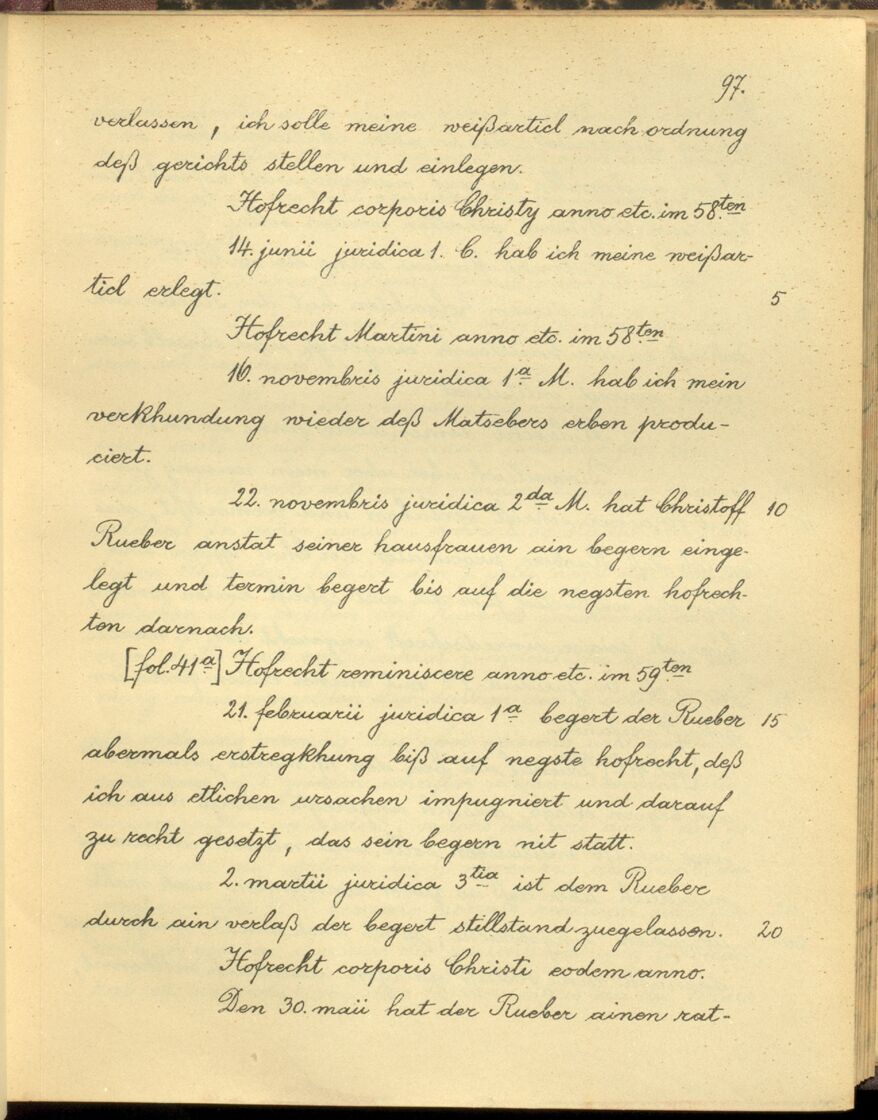 97.
verlassen, ich solle meine weißarticl nach ordnung
deß gerichts stellen und einlegen.
Hofrecht corporis Christy anno etc. im 58.ten
14. junii juridica 1. C. hab ich meine weißar-
ticl erlegt. 5
Hofrecht Martini anno etc. im 58.ten
16. novembris juridica 1.a M. hab ich mein
verkhundung wieder deß Matsebers erben produ-
ciert.
22. novembris juridica 2.da M. hat Christoff 10
Rueber anstat seiner hausfrauen ain begern einge-
legt und termin begert bis auf die negsten hofrech-
ten darnach.
[fol. 41a] Hofrecht reminiscere anno etc. im 59.ten
21. februarii juridica 1a begert der Rueber 15
abermals erstregkhung biß auf negste hofrecht, deß
ich aus etlichen ursachen impugniert und darauf
zu recht gesetzt, das sein begern nit statt.
2. martii juridica 3tia ist dem Rueber
durch ain verlaß der begert stillstand zuegelassen. 20
Hofrecht corporis Christi eodem anno.
Den 30. maii hat der Rueber ainen rat-